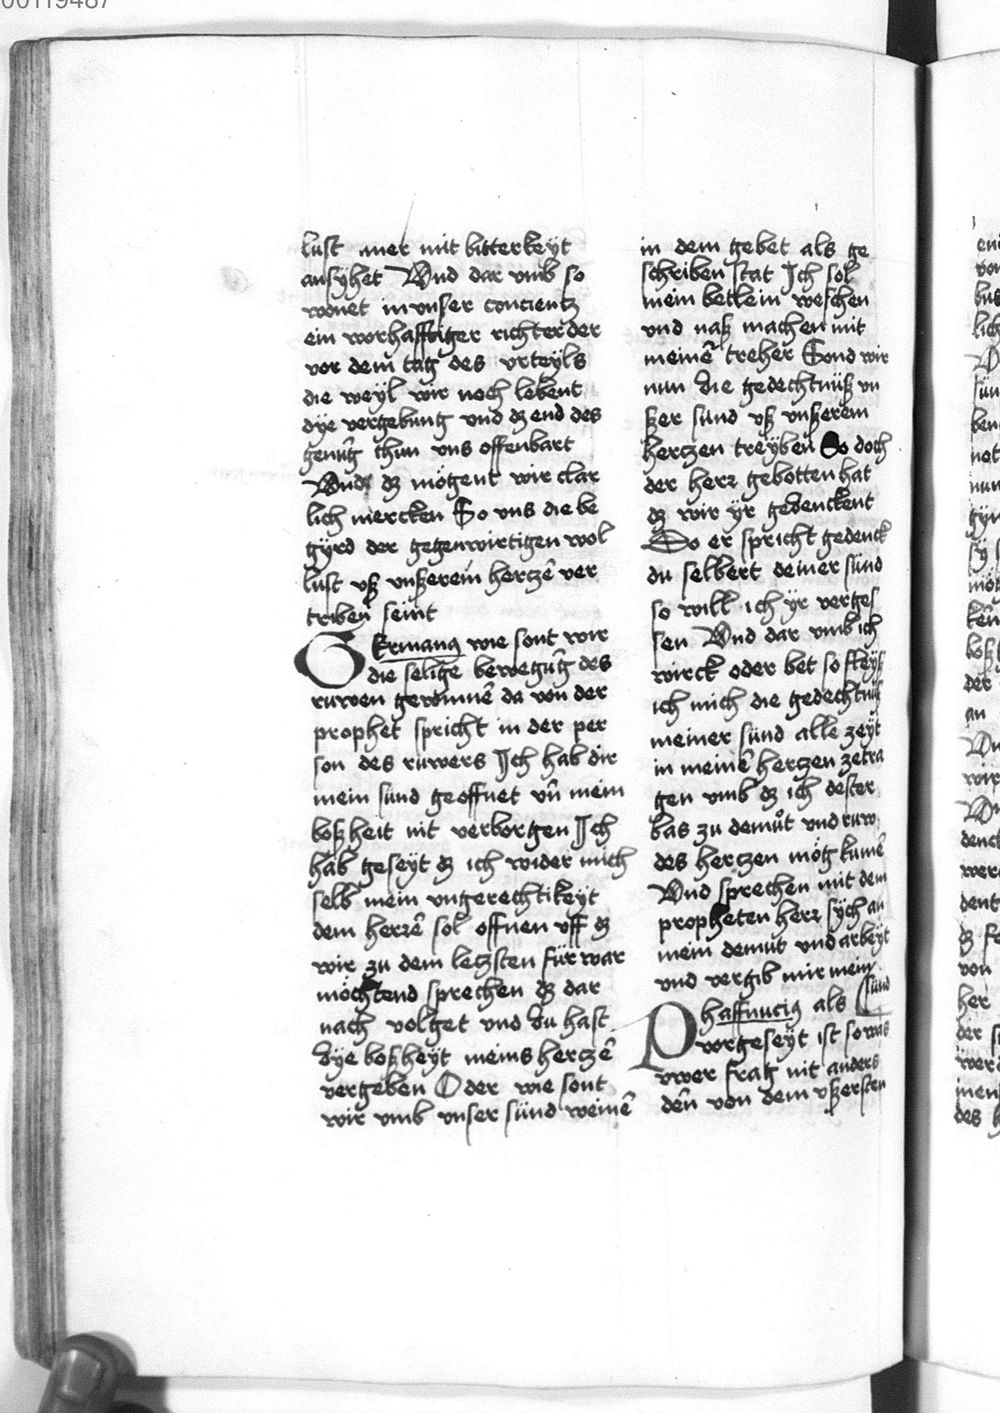 00119487
lust mer mit bitterkeyt
ansyhet Vnd dar vmb so
wonet in vnser concientz
ein worhafftiger richter der
vor dem tag des vrteyls
die weyl wir noch lebent
dye vergebung vnd dz end des
genu̅g thun vns offenbart
Vnd dz mögent wir clar
lich mercken So vns die be
gyrd der gegenwirtigen wol
lust vß vnßerem hertze̅ ver
triben seint
Germanꝯ wie sont wir
die selige bewegu̅g des
ruwen gewinne̅ da von der
prophet spricht in der per
son des ruwers Ich hab dir
mein sund geoffnet vn̅ mein
boßheit nit verborgen Ich
hab geseyt dz ich wider mich
selb mein vngerechtikeyt
dem herre̅ sol offnen vff dz
wir zu dem letzsten fürwar
möchtend sprechen dz dar
nach volget vnd du hast
dye boßheyt meins hertze̅
vergeben Oder wie sont
wir vmb vnser sünd weine̅
in dem gebet als ge
schriben stat Ich sol
mein betlein weschen
vnd naß machen mit
meine̅ treher Sond wir
nun die gedechtnüß vn
ßer sund vß vnßerem
hertzen treyben So doch
der herr gebotten hat
dz wir yr gedenckent
Do er spricht gedenck
du selbert deiner sünd
so will ich yr verges
sen Vnd dar vmb ich
wirck oder bet so fleyß
ich mich die gedechtnüß
meiner sünd alle zeyt
in meine̅ hertzen zetra
gen vmb dz ich dester
bas zu demůt vnd ruw
des hertzen mög kume̅
Vnd sprechen mit dem
propheten herr sych an
mein demut vnd arbeyt
vnd vergib mir mein
sünd
Phaffnuciꝯ als
vorgeseyt ist so was
vwer frag nit anders
den̅ von dem vßersten